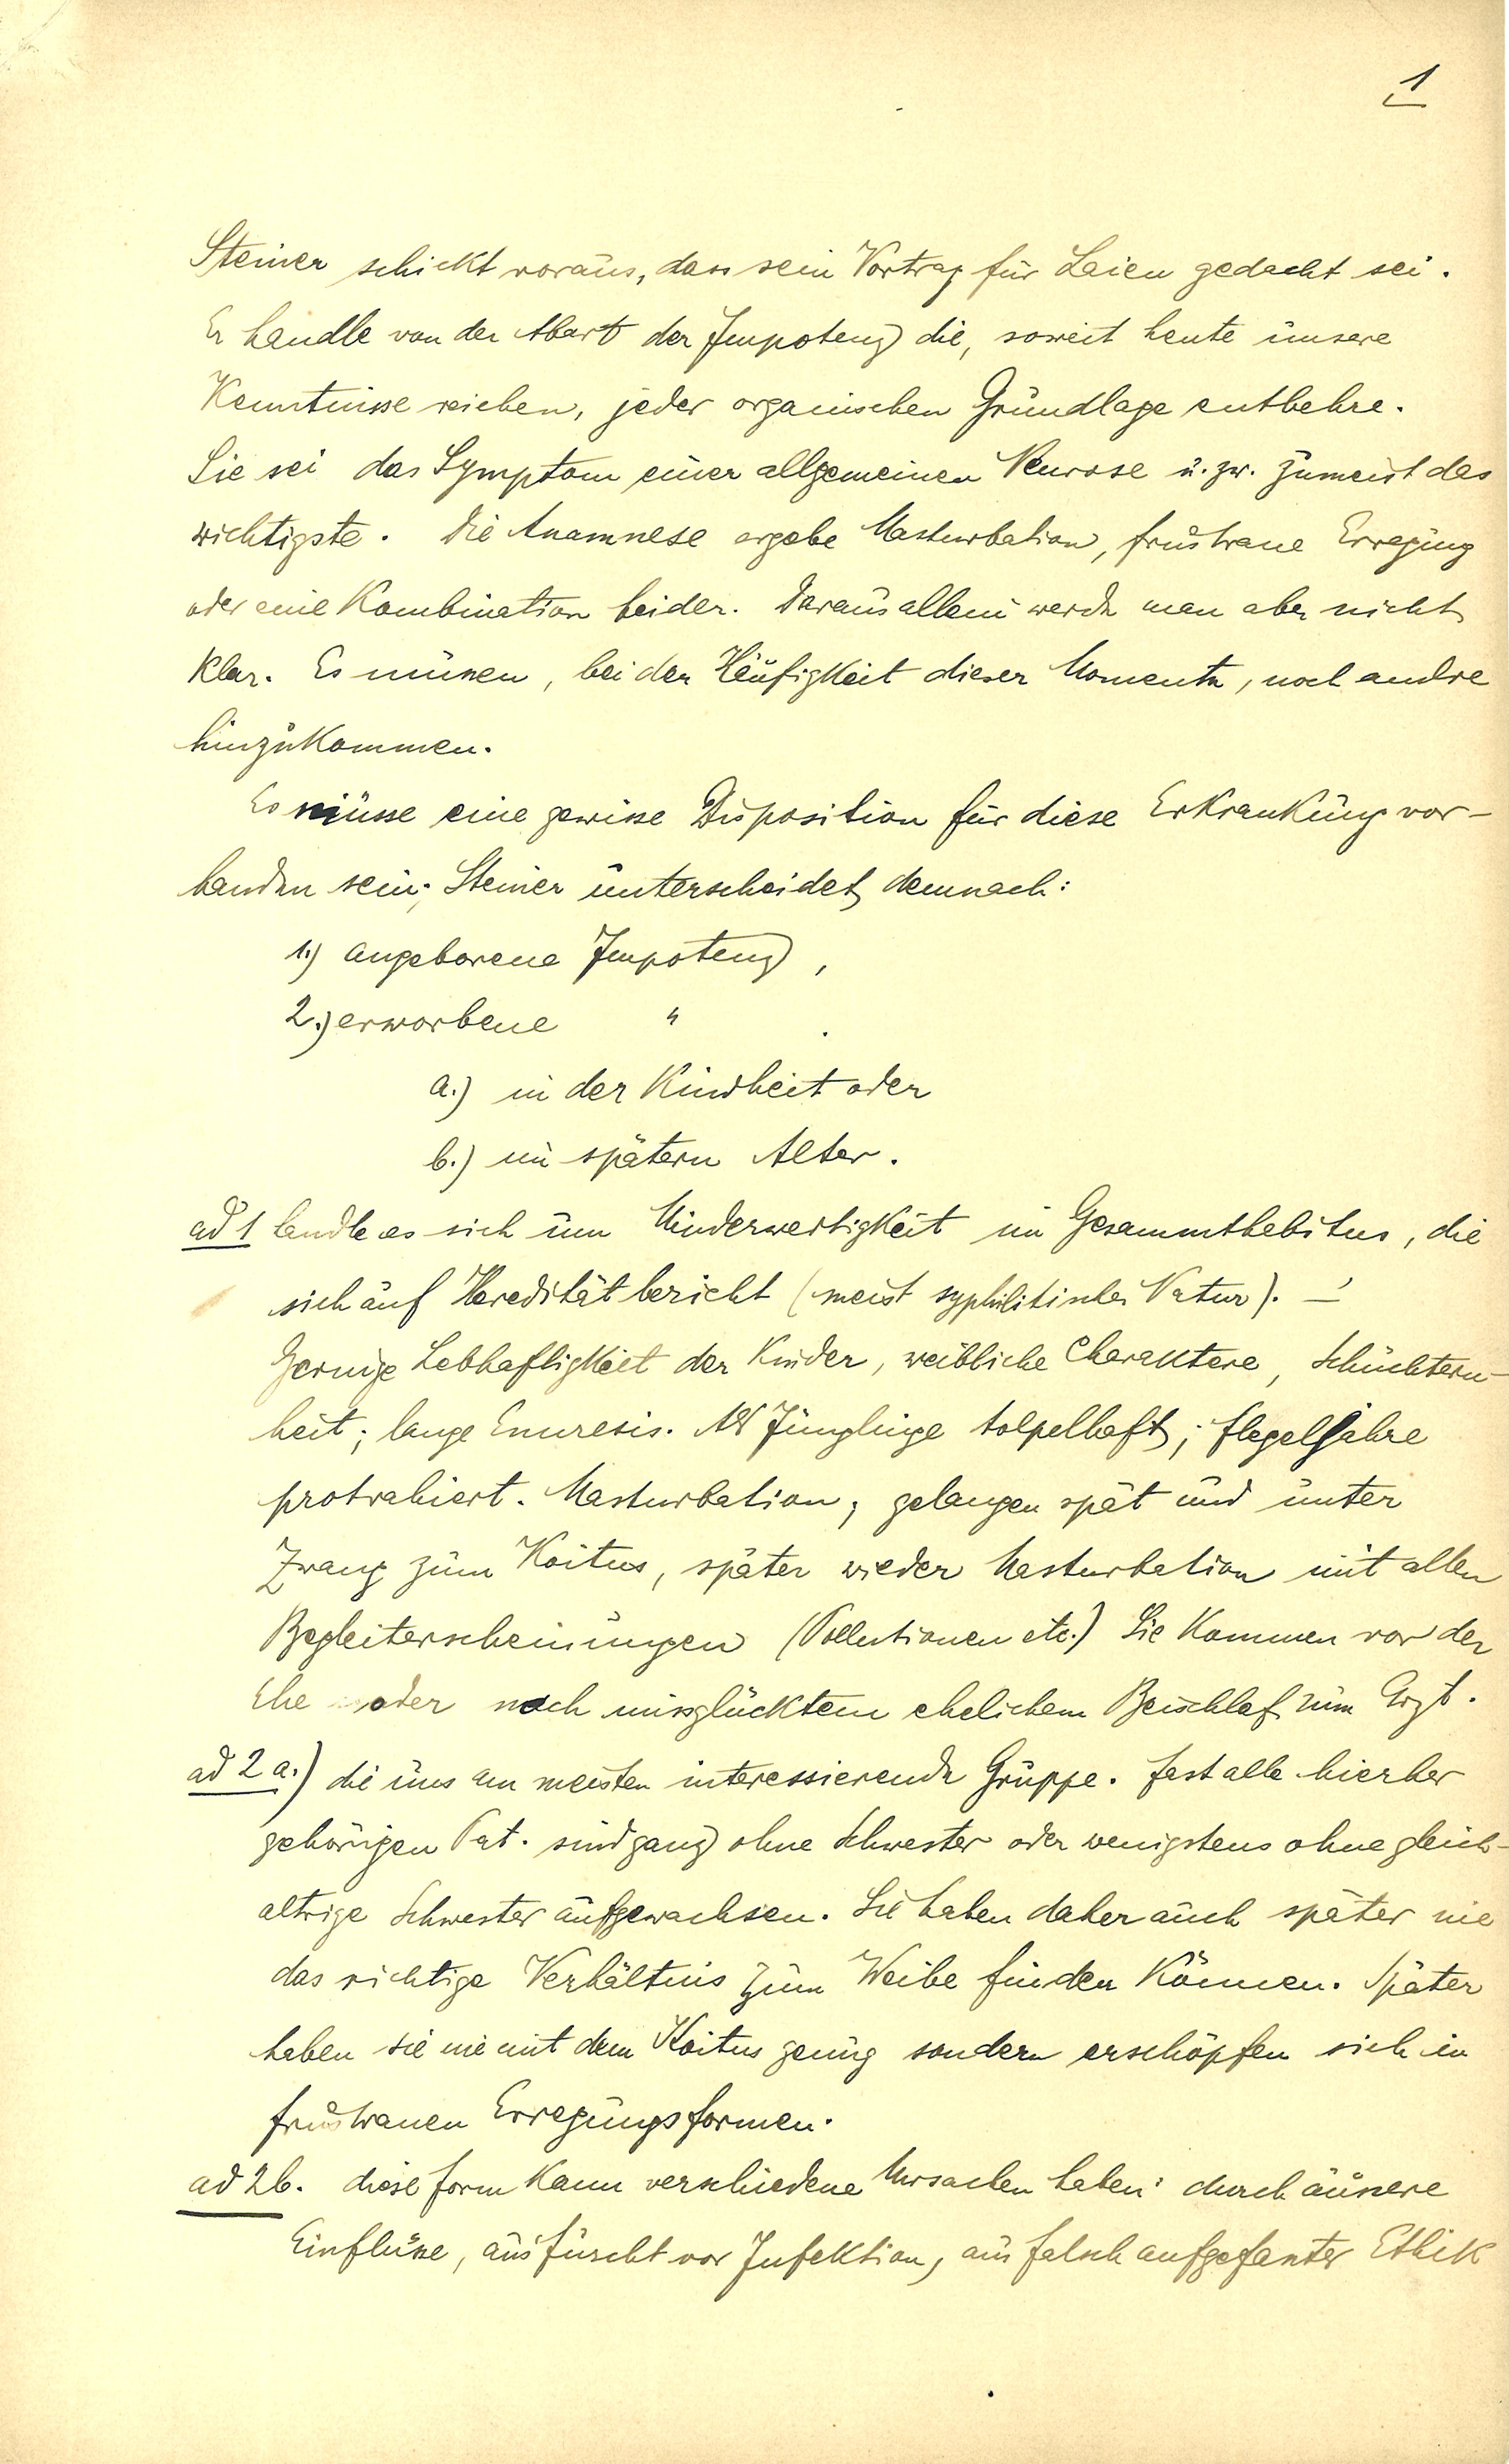 1
Steiner schickt voraus, dass sein Vortrag für Laien gedacht sei.
Er handle von der Abart der Impotenz die, soweit heute unsere
Kenntnisse reichen, jeder organischen Grundlage entbehre.
Sie sei das Symptom einer allgemeinen Neurose u. zw. zumeist das
wichtigste. Die Anamnese ergebe Masturbation, frustrane Erregung
oder eine Kombination beider. Daraus allein werde man aber nicht
klar. Es müssen, bei der Häufigkeit dieser Momente, noch andre
hinzukommen.
Es müsse eine gewisse Disposition für diese Erkrankung vor-
handen sein; Steiner unterscheidet demnach:
1.) angeborene Impotenz,
2.) erworbene " .
a.) in der Kindheit oder
b.) im spätern Alter.
ad 1 handle es sich um Minderwertigkeit im Gesammthabitus, die
sich auf Heredität bezieht (meist syphilitischer Natur). –
Geringe Lebhaftigkeit der Kinder, weibliche Charaktere, Schüchtern-
heit; lange Enuresis. Als Jünglinge tolpelhaft; Flegeljahre
protrahiert. Masturbation; gelangen spät und unter
Zwang zum Koitus, später wieder Masturbation mit allen
Begleiterscheinungen (Pollutionen etc.) Sie kommen vor der
Ehe oder nach missglücktem ehelichem Beischlaf zum Arzt.
ad 2 a.) die uns am meisten interessierende Gruppe. Fast alle hierher
gehörigen Pat. sind ganz ohne Schwester oder wenigstens ohne gleich-
altrige Schwester aufgewachsen. Sie haben daher auch später nie
das richtige Verhältnis zum Weibe finden können. Später
haben sie nie mit dem Koitus genug sondern erschöpfen sich in
frustranen Erregungsformen.
ad 2b. diese Form kann verschiedene Ursachen haben: durch äussere
Einflüsse, aus Furcht vor Infektion, aus falsch aufgefasster Ethik